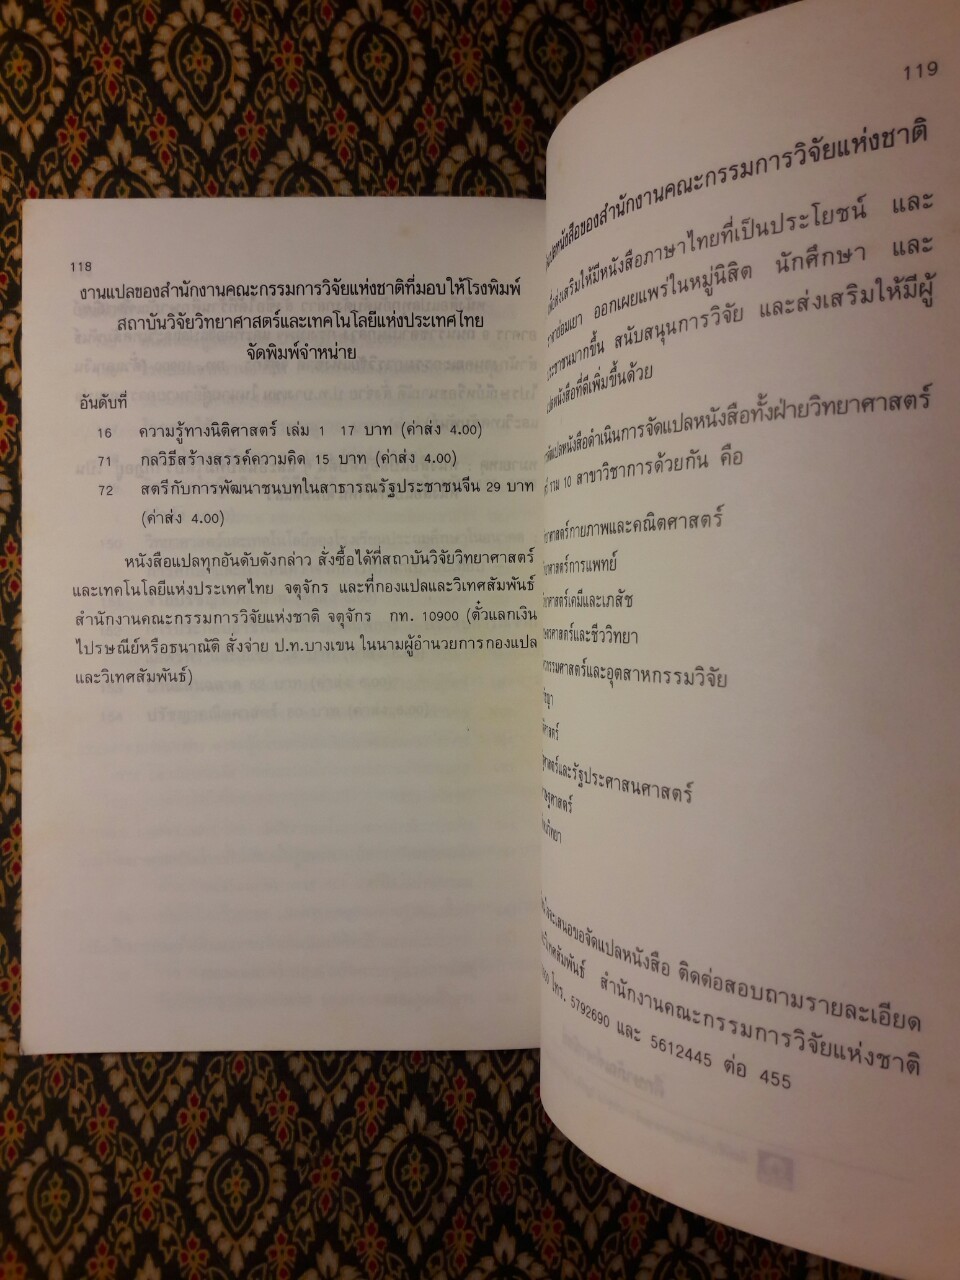 118
งานแปลของสำนักงานคณะกรรมการวิจัยแห่งชาติที่มอบให้โรงพิมพ์
สถาบันวิจัยวิทยาศาสตร์และเทคโนโลยีแห่งประเทศไทย
จัดพิมพ์จำหน่าย
อันดับที่
16 ความรู้ทางนิติศาสตร์ เล่ม 1 17 บาท (ค่าส่ง 4.00)
71 กลวิธีสร้างสรรค์ความคิด 15 บาท (ค่าส่ง 4.00)
72 สตรีกับการพัฒนาชนบทในสาธารณรัฐประชาชนจีน 29 บาท
(ค่าส่ง 4.00)
หนังสือแปลทุกอันดับดังกล่าว สั่งซื้อได้ที่สถาบันวิจัยวิทยาศาสตร์
และเทคโนโลยีแห่งประเทศไทย จตุจักร และที่กองแปลและวิเทศสัมพันธ์
สำนักงานคณะกรรมการวิจัยแห่งชาติ จตุจักร กท. 10900 (ตั๋วแลกเงิน
ไปรษณีย์หรือธนาณัติ สั่งจ่าย ป.ท.บางเขน ในนามผู้อำนวยการกองแปล
และวิเทศสัมพันธ์)
119
หนังสือของสำนักงานคณะกรรมการวิจัยแห่งชาติ
ส่งเสริมให้มีหนังสือภาษาไทยที่เป็นประโยชน์ และ
ออกเผยแพร่ในหมู่นิสิต นักศึกษา และ
ประชาชนมากขึ้น สนับสนุนการวิจัย และส่งเสริมให้มีผู้
หนังสือที่ดีเพิ่มขึ้นด้วย
แปลหนังสือดำเนินการจัดแปลหนังสือทั้งฝ่ายวิทยาศาสตร์
รวม 10 สาขาวิชาการด้วยกัน คือ
ศาสตร์กายภาพและคณิตศาสตร์
ศาสตร์การแพทย์
ศาสตร์เคมีและเภสัช
ศาสตร์และชีววิทยา
กรรมศาสตร์และอุตสาหกรรมวิจัย
ศาสตร์
ศาสตร์และรัฐประศาสนศาสตร์
ศาสตร์
วิทยา
จะเสนอขอจัดแปลหนังสือ ติดต่อสอบถามรายละเอียด
วิเทศสัมพันธ์ สำนักงานคณะกรรมการวิจัยแห่งชาติ
โทร. 5792690 และ 5612445 ต่อ 455